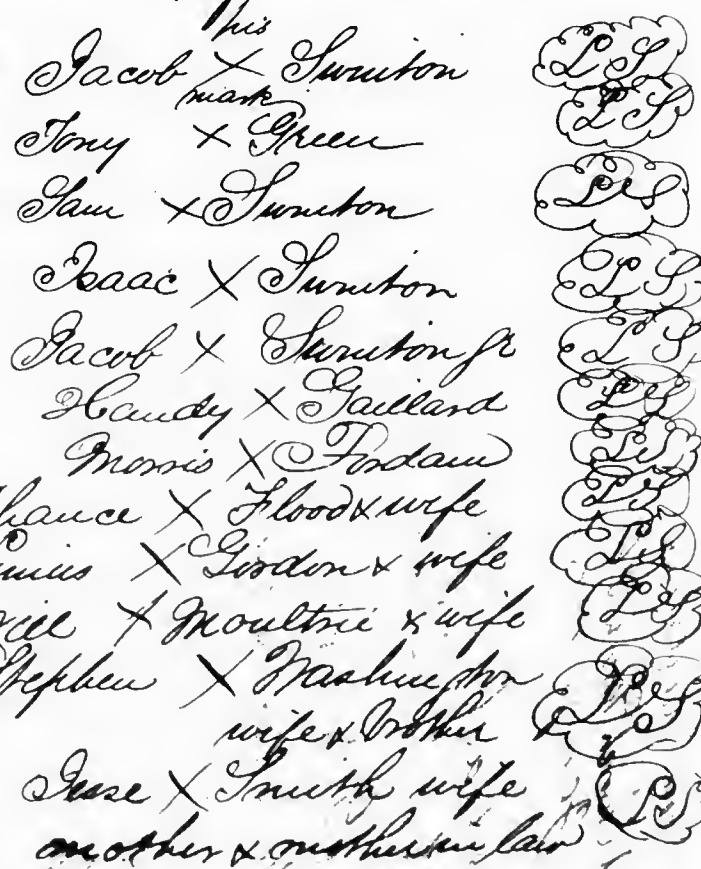 his
Jacob X Swinton LS
mark
Tony X Green LS
Sam X Swinton LS
Isaac X Swinton LS
Jacob X Swinton Jr LS
Handy X Gaillard LS
Morris X Fordam LS
X Flood & wife LS
X Gordon & wife LS
X Moultrie & wife LS
Stephen X Washington LS
wife & brother
Jesse X Smith wife LS
mother & mother in law